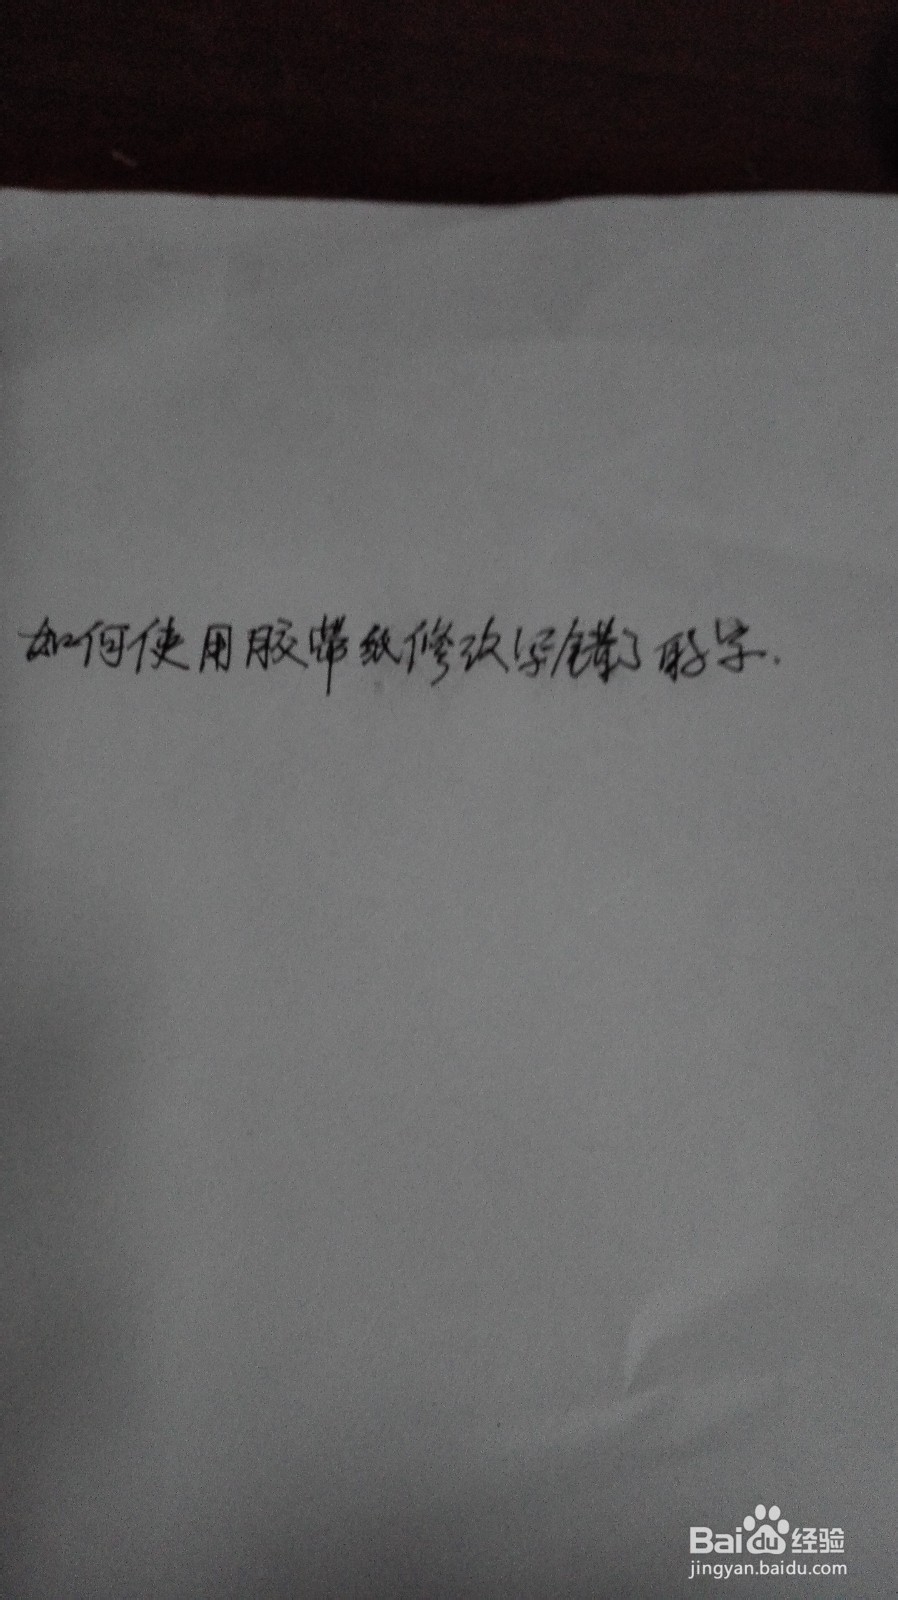 如何使用胶带纸修改写错了的字.
Bai du 经验
jingyan.baidu.com